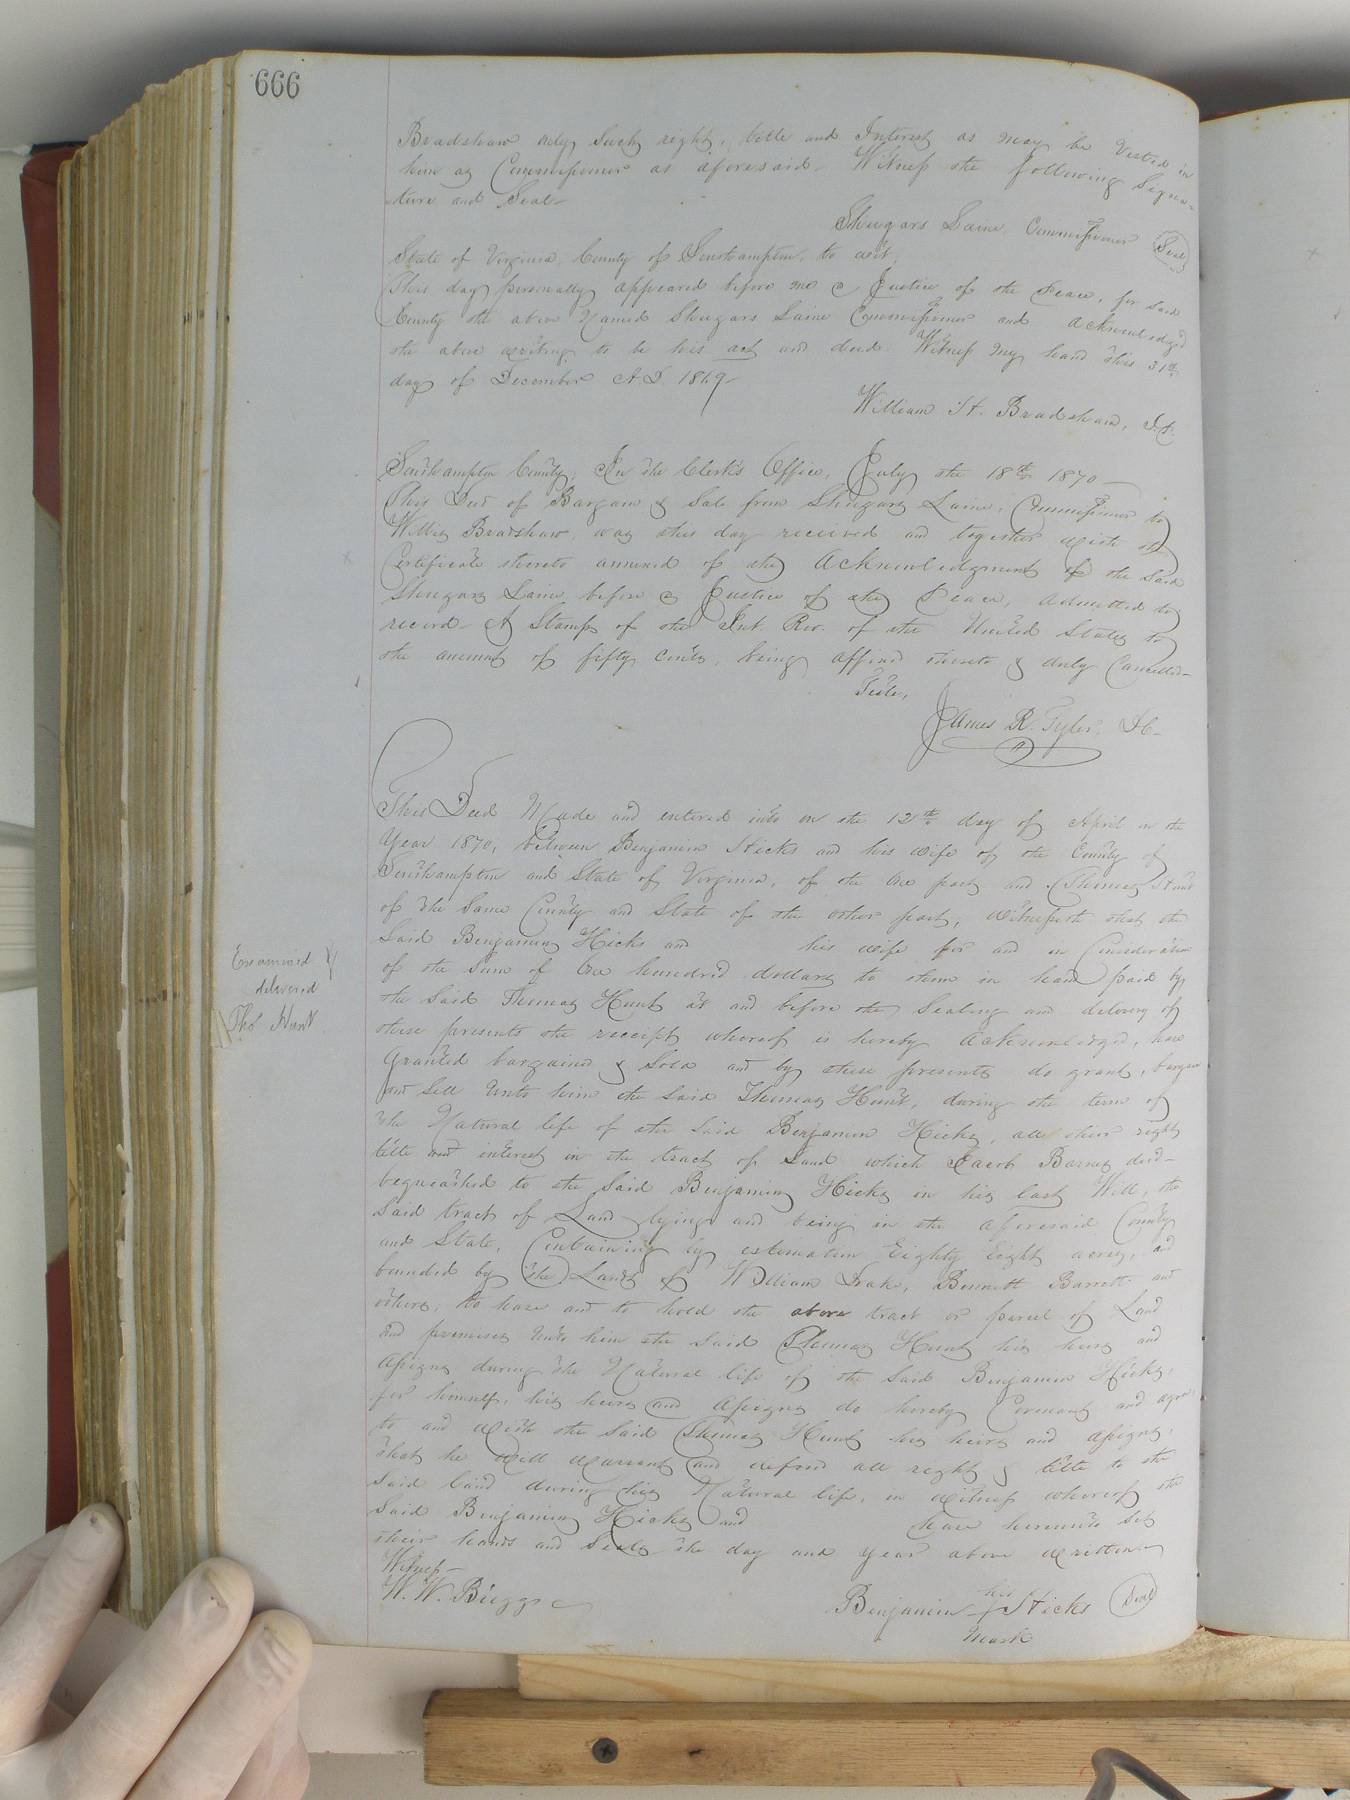 666
Bradshaw only such right, title and Interest as may be Vested in
him as Commissioner as aforesaid. Witness the following Signa-
ture and Seal-
Shugars Laine, Commissioner Seal
State of Virginia, County of Southampton, to wit,
This day personally appeared before me a Justice of the Peace, for said
County the above Named Shugars Laine Commissioner and acknowledged
the above writing to be his act and deed. Witness my hand this 31st
day of December A.D. 1869-
William H. Bradshaw, J.P.
Southampton County, In the Clerk's Office, July the 18th 1870-
This Deed of Bargain & Sale from Shugars Laine, Commissioner to
Willis Bradshaw, was this day received and together with the
Certificate thereto annexed of the Acknowledgment of the said
Shugars Laine, before a Justice of the Peace, admitted to
record- A Stamp of the Int. Rev. of the United States to
the amount of fifty cents, being affixed thereto & duly Cancelled-
Teste,
James R. Tyler, D.C-
This Deed Made and entered into on the 12th day of April in the
Year 1870, between Benjamin Hicks and his wife of the County of
Southampton and State of Virginia, of the One part and Thomas Hunt
of the Same County and State of the other part, Witnesseth that the
Said Benjamin Hicks and his wife for and in Consideration
of the Sum of One hundred dollars to them in hand paid by
the Said Thomas Hunt at and before the Sealing and delivery of
these presents the receipt whereof is hereby acknowledged, have
Granted bargained & Sold and by these presents do grant, bargain
and Sell Unto him the Said Thomas Hunt, during the term of
the Natural life of the Said Benjamin Hicks, all their right
title and interest in the tract of Land which Jacob Barnes decd-
bequeathed to the Said Benjamin Hicks in his last Will, the
Said tract of Land lying and being in the aforesaid County
and State, Containing by estimation Eighty Eight acres, and
bounded by the Lands of William Drake, Bennett Barrett and
others, to have and to hold the above tract or parcel of Land
and premises Unto him the Said Thomas Hunt his heirs and
Assigns during the Natural life of the Said Benjamin Hicks,
for himself, his heirs and Assigns do hereby Covenant and agree,
to and with the Said Thomas Hunt his heirs and assigns,
that he will Warrant and defend all right & title to the
Said land during his Natural life, in witness whereof the
Said Benjamin Hicks and have hereunto Set
their hands and Seals the day and year above written-
Witness-
W. W. Briggs
Benjamin his + Hicks Seal
mark
Examined &
delivered
Tho^s Hunt